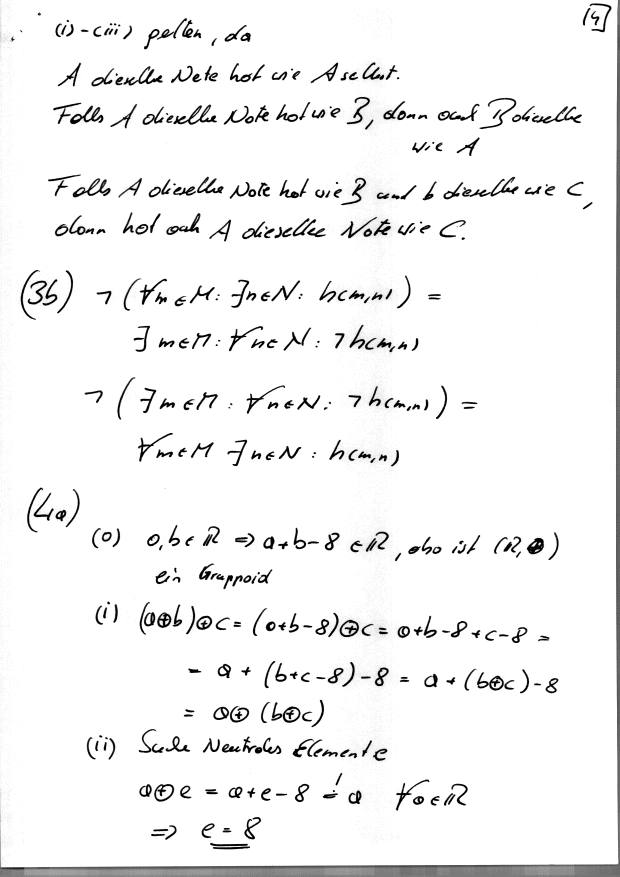 14
(i)-(iii) gelten, da
A dieselbe Note hat wie A selbst.
Falls A dieselbe Note hat wie B, dann auch B dieselbe
wie A
Falls A dieselbe Note hat wie B und b dieselbe wie C,
dann hat auch A dieselbe Note wie C.
(3b) ¬(∀m∈M: ∃n∈N: h(m,n)) =
∃m∈M: ∀n∈N: ¬h(m,n)
¬(∃m∈M: ∀n∈N: ¬h(m,n)) =
∀m∈M ∃n∈N: h(m,n)
(4a)
(0) a,b∈ℝ ⇒ a+b-8 ∈ℝ, also ist (ℝ,⊕)
ein Gruppoid
(i) (a⊕b)⊕c = (a+b-8)⊕c = a+b-8+c-8 =
= a + (b+c-8)-8 = a + (b⊕c)-8
= a⊕(b⊕c)
(ii) Suche Neutrales Element e
a⊕e = a+e-8 =! a ∀a∈ℝ
⇒ e = 8